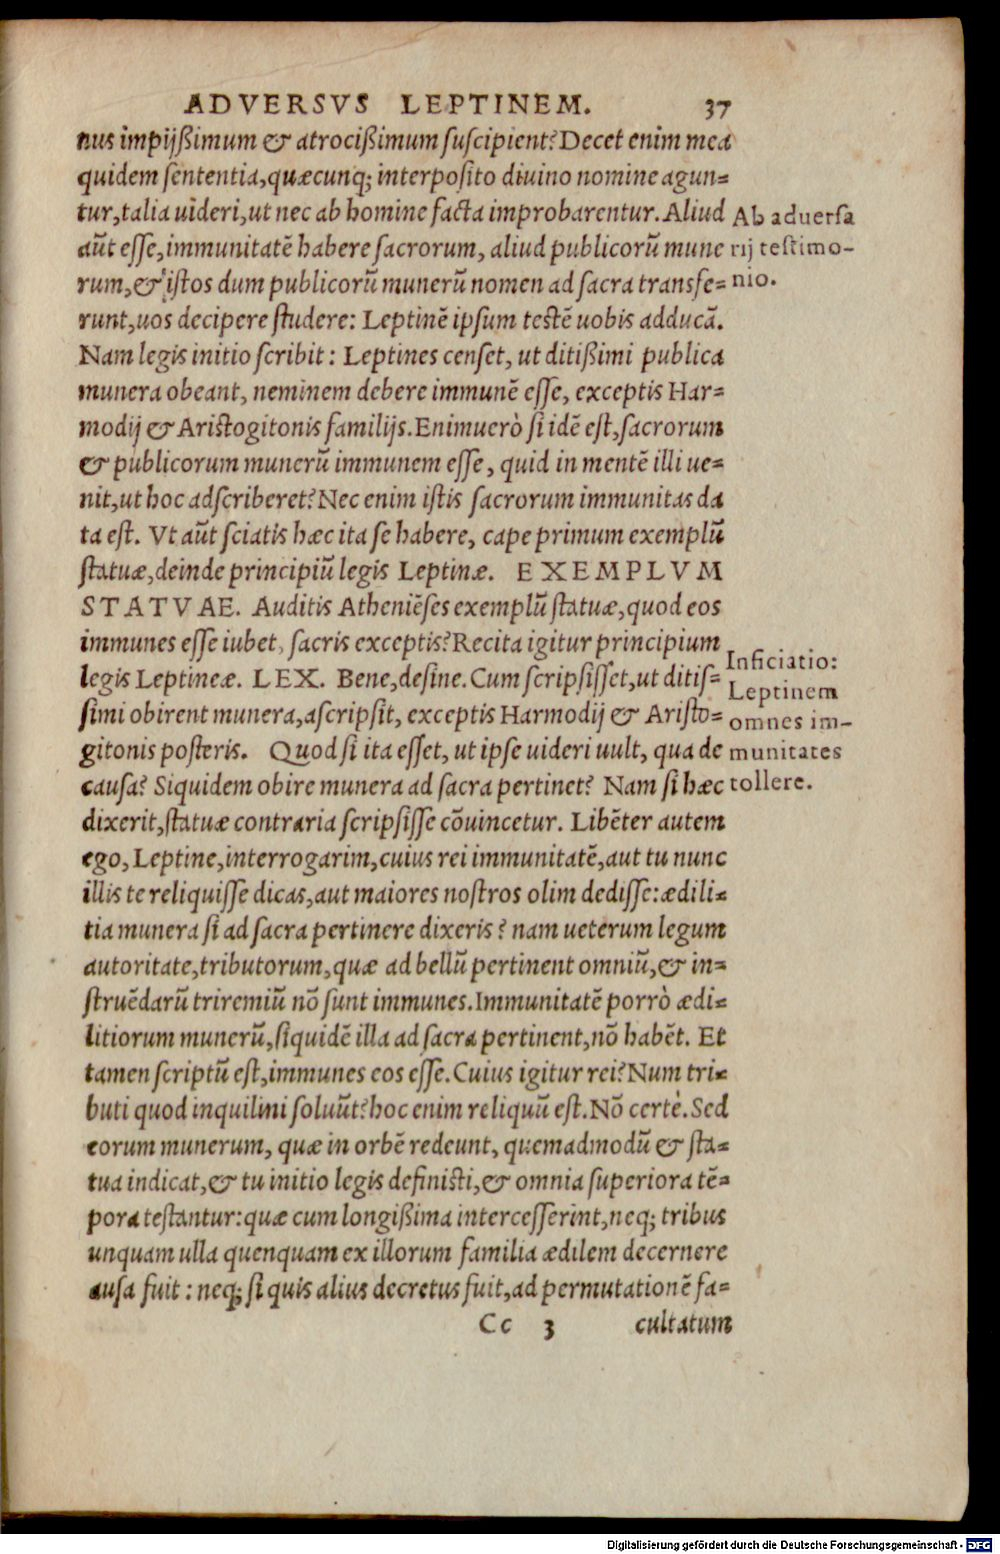 ADVERSVS LEPTINEM. 37
nus impijßimum & atrocißimum suscipient? Decet enim mea
quidem sententia, quæcunq; interposito diuino nomine agun=
tur, talia uideri, ut nec ab homine facta improbarentur. Aliud
aūt esse, immunitatē habere sacrorum, aliud publicorū mune
rum, & istos dum publicorū munerū nomen ad sacra transfe=
runt, uos decipere studere: Leptinē ipsum testē uobis adducā.
Nam legis initio scribit: Leptines censet, ut ditißimi publica
munera obeant, neminem debere immunē esse, exceptis Har=
modij & Aristogitonis familijs. Enimuerò si idē est, sacrorum
& publicorum munerū immunem esse, quid in mentē illi ue=
nit, ut hoc adscriberet? Nec enim istis sacrorum immunitas da
ta est. Vt aūt sciatis hæc ita se habere, cape primum exemplū
statuæ, deinde principiū legis Leptinæ. EXEMPLVM
STATVAE. Auditis Atheniēses exemplū statuæ, quod eos
immunes esse iubet, sacris exceptis? Recita igitur principium
legis Leptineæ. LEX. Bene, desine. Cum scripsisset, ut ditis=
simi obirent munera, ascripsit, exceptis Harmodij & Aristo=
gitonis posteris. Quod si ita esset, ut ipse uideri uult, qua de
causa? Siquidem obire munera ad sacra pertinet? Nam si hæc
dixerit, statuæ contraria scripsisse cōuincetur. Libēter autem
ego, Leptine, interrogarim, cuius rei immunitatē, aut tu nunc
illis te reliquisse dicas, aut maiores nostros olim dedisse: ædili=
tia munera si ad sacra pertinere dixeris? nam ueterum legum
autoritate, tributorum, quæ ad bellū pertinent omniū, & in=
struēdarū triremiū nō sunt immunes. Immunitatē porrò ædi=
litiorum munerū, siquidē illa ad sacra pertinent, nō habēt. Et
tamen scriptū est, immunes eos esse. Cuius igitur rei? Num tri=
buti quod inquilini soluūt? hoc enim reliquū est. Nō certè. Sed
eorum munerum, quæ in orbē redeunt, quemadmodū & sta=
tua indicat, & tu initio legis definisti, & omnia superiora tē=
pora testantur: quæ cum longißima intercesserint, neq; tribus
unquam ulla quenquam ex illorum familia ædilem decernere
ausa fuit: neq; si quis alius decretus fuit, ad permutationē fa=
Cc 3 cultatum
Ab aduersa
rij testimo-
nio.
Inficiatio:
Leptinem
omnes im-
munitates
tollere.
Digitalisierung gefördert durch die Deutsche Forschungsgemeinschaft - DFG